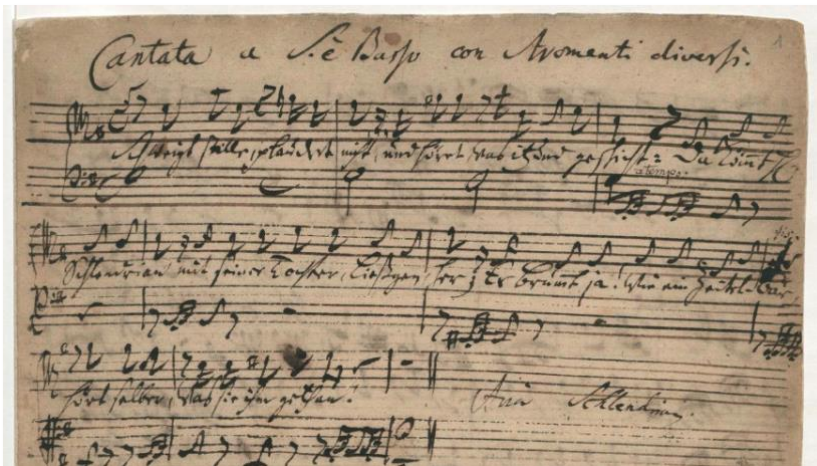 Cantata a S. è Basso con Stromenti diversi.
1
Schweigt stille, plaudert nicht, und höret was itzund geschicht: Da kömt H
a tempo.
Schlendrian mit seiner Tochter, Ließgen her; Er brumt ja wie ein Zeidel Bär,
hört selber, was sie ihm gethan!
Aria Schlendrian.